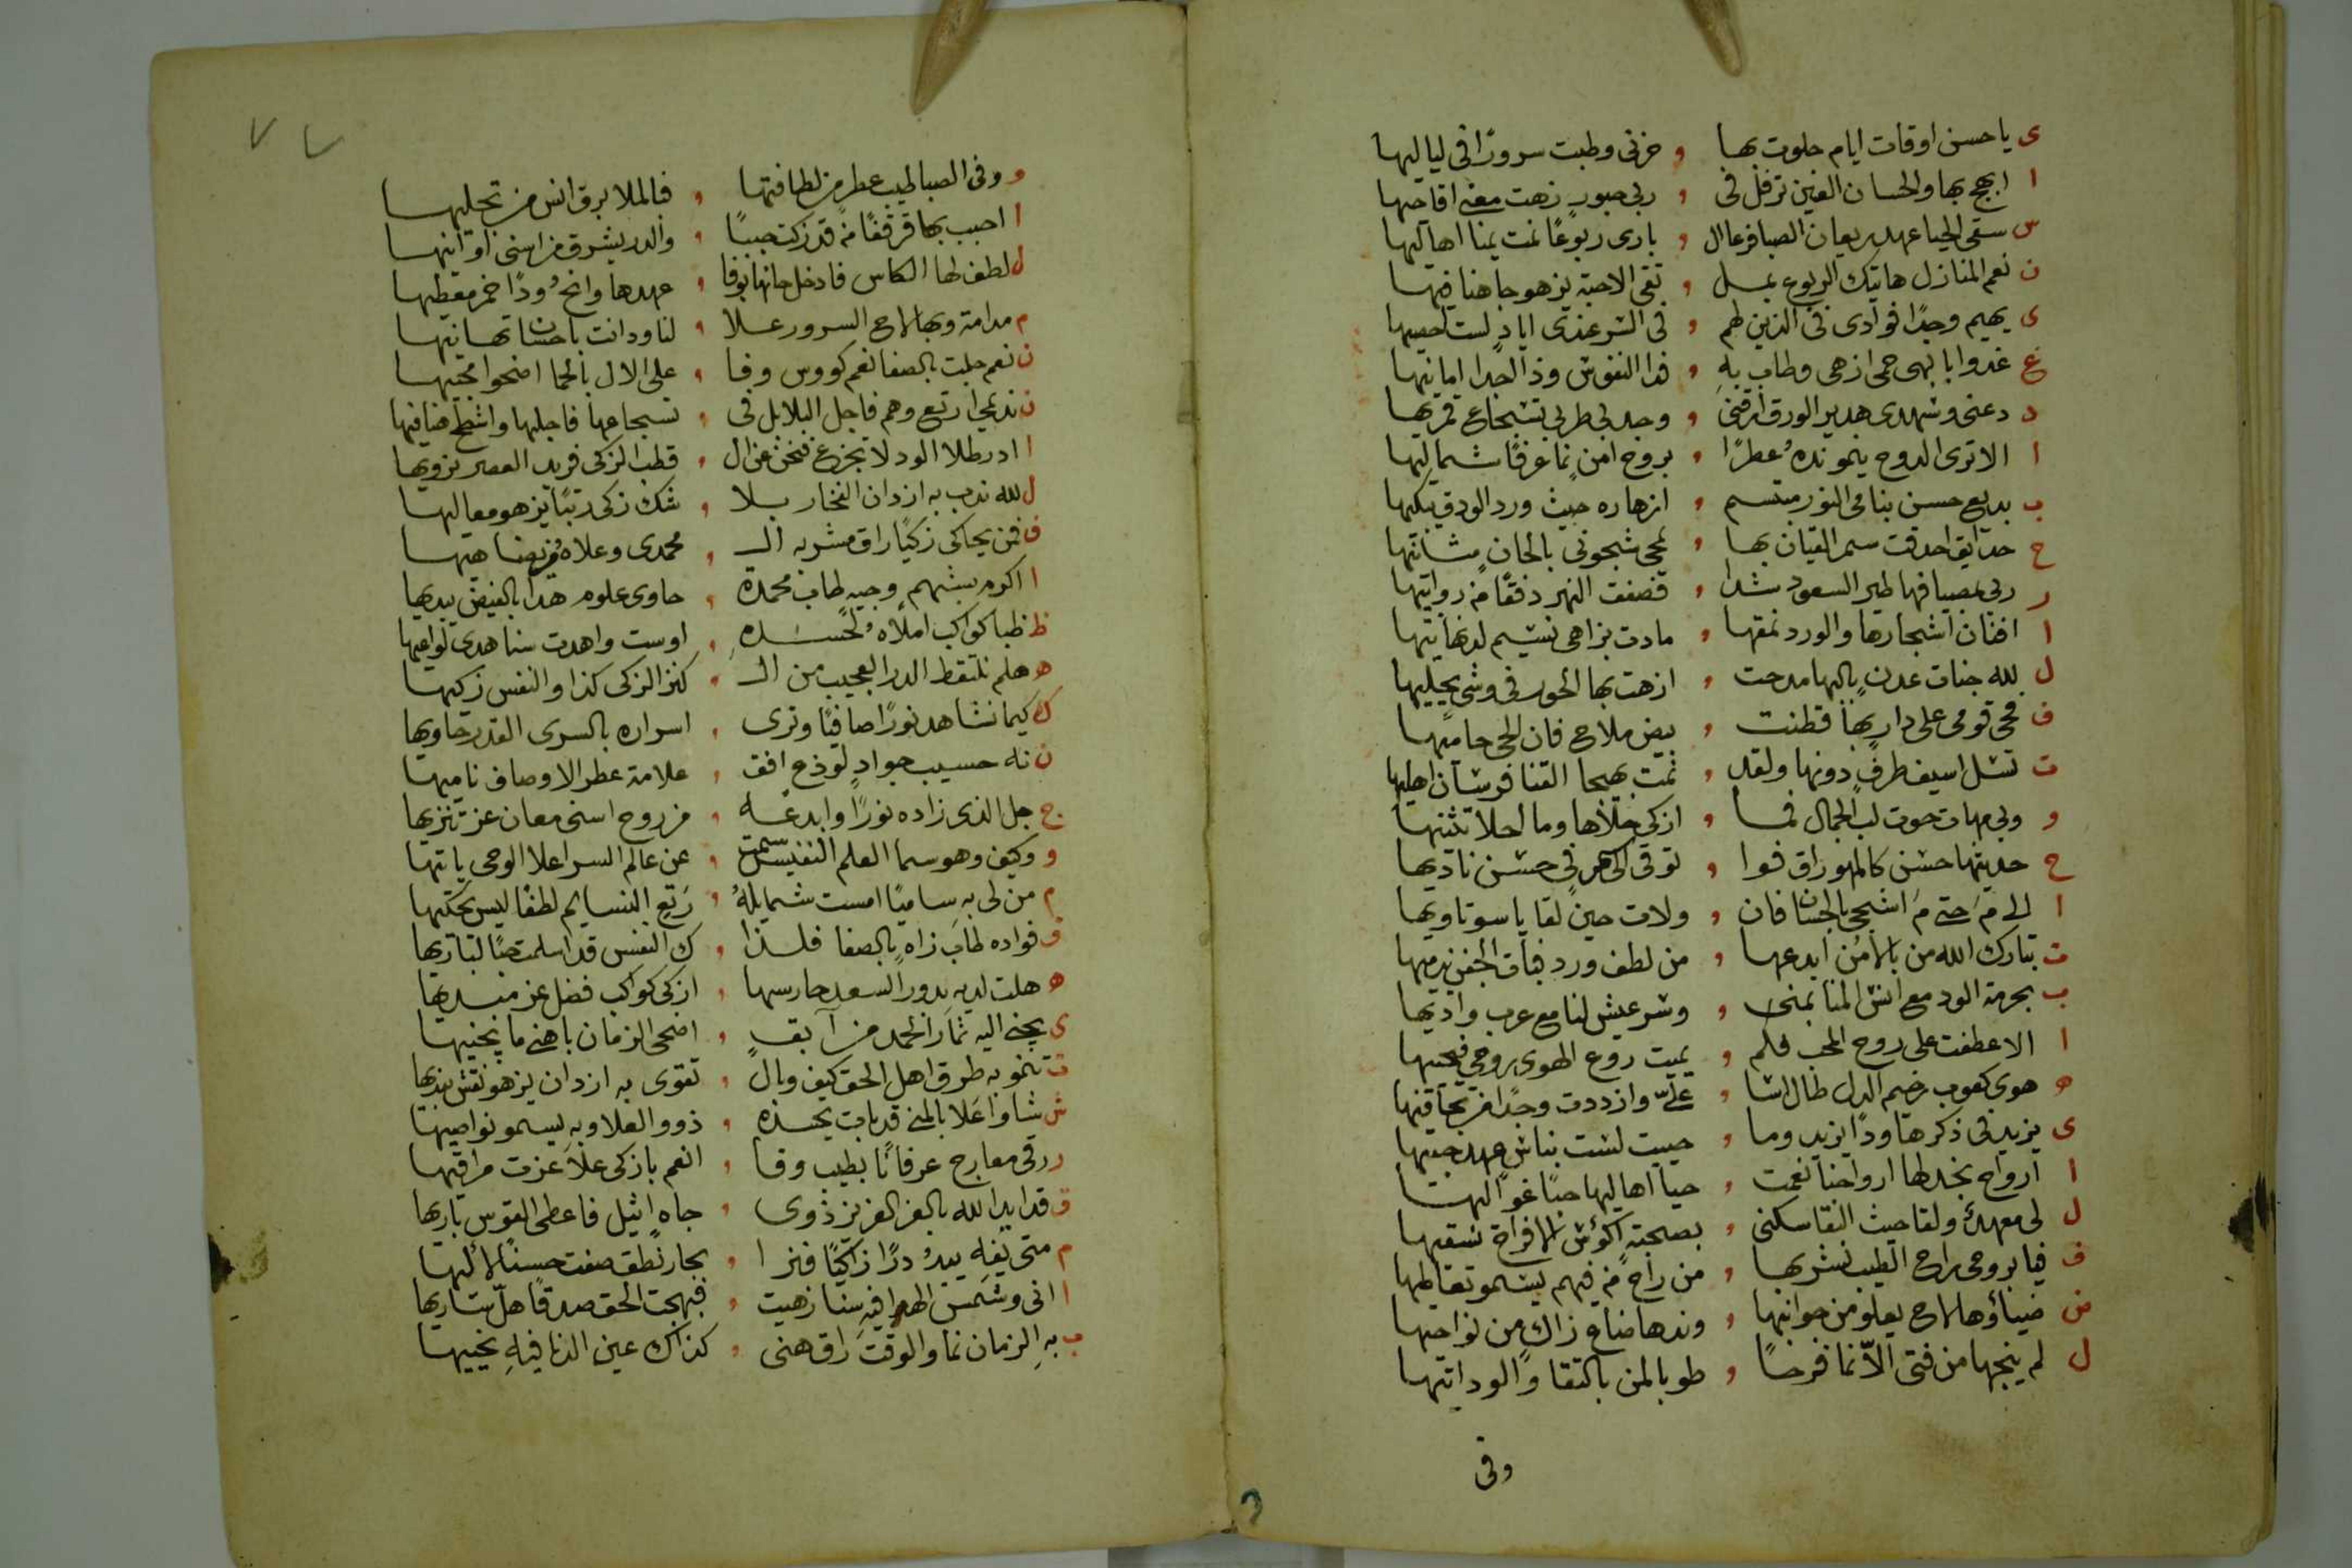 ى يا حسن اوقات ايام حلوت بها , حزنى وطبت سرورًا فى لياليها
ا ابهج بها والحسان الغين ترفل فى , ربى حبور زهت مغنى اقاحيها
س سقى الحيا عهد ريعان الصبا فرعا ال , بارى ربوعًا نمت يمنا اهاليها
ن نعم المنازل هاتيك الربوع بمسل , تقى الاحبة يزهو جاهنا فيها
ى يهيم وجدًا فوادى فى الذين لهم , فى الشر عندى اياد لست احصيها
غ غدوا بابهى حمى ازهى وطاب به , فدا النفوس وذا الجدا امانيها
د دعنى وشهدى هدير الورق ارقنى , وجد بى طربى تشجاع قمريها
ا الا ترى الدوح ينمو نده عطرًا , بروح امن نما عرفًا شماليها
ب بديع حسن بنامى النور مبتسم , ازهاره حيث ورد الودق يبكيها
ح حدايق احدقت سمر القيان بها , لمحى شجونى بالحان مثانيها
ر ربى بصيافها طير السعود شدا , فصفت النهر دفقًا من روابيها
ا افنان اشجارها والورد نمقها , مادت بزاهى نسيم لذنهايتها
ل لله جنات عدن بالبها مدحت , ازهت بها الحور فى وشى يجليها
ف فحى قومى على دار بها قطنت , بيض ملاح فان الحى حاميها
ت تسل اسيف طرف دونها ولقد , نمت بهيجا القنا فرسان اهليها
و وبى مهات حوت لب الجمال فما , ازكى حلاها وما احلا تثنيها
ح حديثها حسن كالمهو راق فوا , توقى الى فى حسن ناديها
ا الى مَ حتى مَ اشجى بالحسان فان , ولات حين لقا ياسوتا ويها
ت تبارك الله من بالامن ابدعها , من لطف ورد فبات الجفن يدميها
ب بحرمة الود مع انس المنا بمنى , وشر عيش لنا مع عرب واديها
ا الا عطفت على روح المحب فلم , يميت روع الهوى بروحى فيحييها
ه هوى كعوب رخيم الدل طال اشا , علىّ وازددت وجدًا من تجافيها
ى يزيد فى ذكرها ودًا يزيد وما , حييت لست بناس عهد حبيها
ا ارواح نجد لها ارواحنا نعمت , حيا اهاليها حبًا غواليها
ل لى معهد ولقا حيث النقا سكنى , بصحبة اكؤس الافراح نسقيها
ف فيا بروحى براح الطيب نشربها , من راح من فيهم يسمو تعاطيها
ض ضياؤها لاح يعلو من حوانيها , وندها ضاع زاك من نواحيها
ل لم ينجها من فتى الاّ نما فرحًا , طوبا لمن بالتقا والود اتيها
وفى
و وفى الصبا طيب عطر من لطافتها , فالملا برق انس من تجليها
ا احبب بها قرقفًا من قد زكت حببًا , والدر يشرق من اسنى اوانيها
ل لطف لها الكاس فادخل حانها بوفا , عهدها وانح ودًا خمر معطيها
م مدامة وبها لاح السرور علا , لنا ودانت باحسان تهانيها
ن نعم جلت بالصفا نعم كووس وفا , على الاول بالحما اضحوا محبيها
ن نديمى ارتع وهم فاجل البلابل فى , تسجاعها فاجليها واشطح هنا فيها
ا ادر طلا الود لا تجزع فنحن غزال , قطب الزكى فريد العصر نرويها
ل لله ندب به ازدان الفخار بلا , شك زكى رتبًا يزهو معاليها
ف فمن يحاكى زكيًا راق مشربه الـ , محمدى وعلاه من يضاهيها
ا اكرم بشهم وجيه طاب محمدة , حاوى علوم هدا بالفيض يبديها
ظ ظبا كواكب املاه لحسده , اوست واهدت سنا هدى لواعيها
ه هلم نلتقط الدر العجيب من الـ , كنز الزكى كذا والنفس زكيها
ك كيما نشاهد نورًا صافيًا وترى , اسراره بالسرى القدير حاويها
ن نه حسيب جواد لوذع افق , علامة عطر الاوصاف ناميها
ج جل الذى زاده نورًا وابدعه , من روح اسنى معان عز تنزيها
و وكيف وهو سما العلم النفيس سمت , عن عالم السر اعلا الوحى ياتيها
م من لى به ساميًا امست شمايله , رَتع النسايم لطفًا ليس يحكيها
ف فواده طاب زاه بالصفا فلذا , ك النفس قد اسلمت حبًا لباريها
ه هلت لديه بدور السعد حارسها , ازكى كواكب فضل عز مبديها
ى يجنى اليه ثمار الحمد من آبق , اضحى الزمان باهنى ما يجنيها
ت تنمو به طرق اهل الحق كيف وبال , تقوى به ازدان يزهو نقش بنديها
ش شاوا علا بالمنى قد بات يحسده , ذوو العلا وبه يسمو نواصيها
ر رقى معارج عرفانًا بطيب وفا , انعم بازكى علا عزت مراقيها
ق قد ايد الله بالعز العزيز ذوى , جاه اثيل فاعطى القوس باريها
م متى يفه يبد درًا زاكيًا فنرا , بحار نطق صفت حسنًا لأليها
ا انى وشمس الهدا فيه سنا زهيت , فبهجت الحق صدقًا هلّ ساريها
ب به الزمان نما والوقت راق هنى , كذاك عين الدنا فيه يحييها